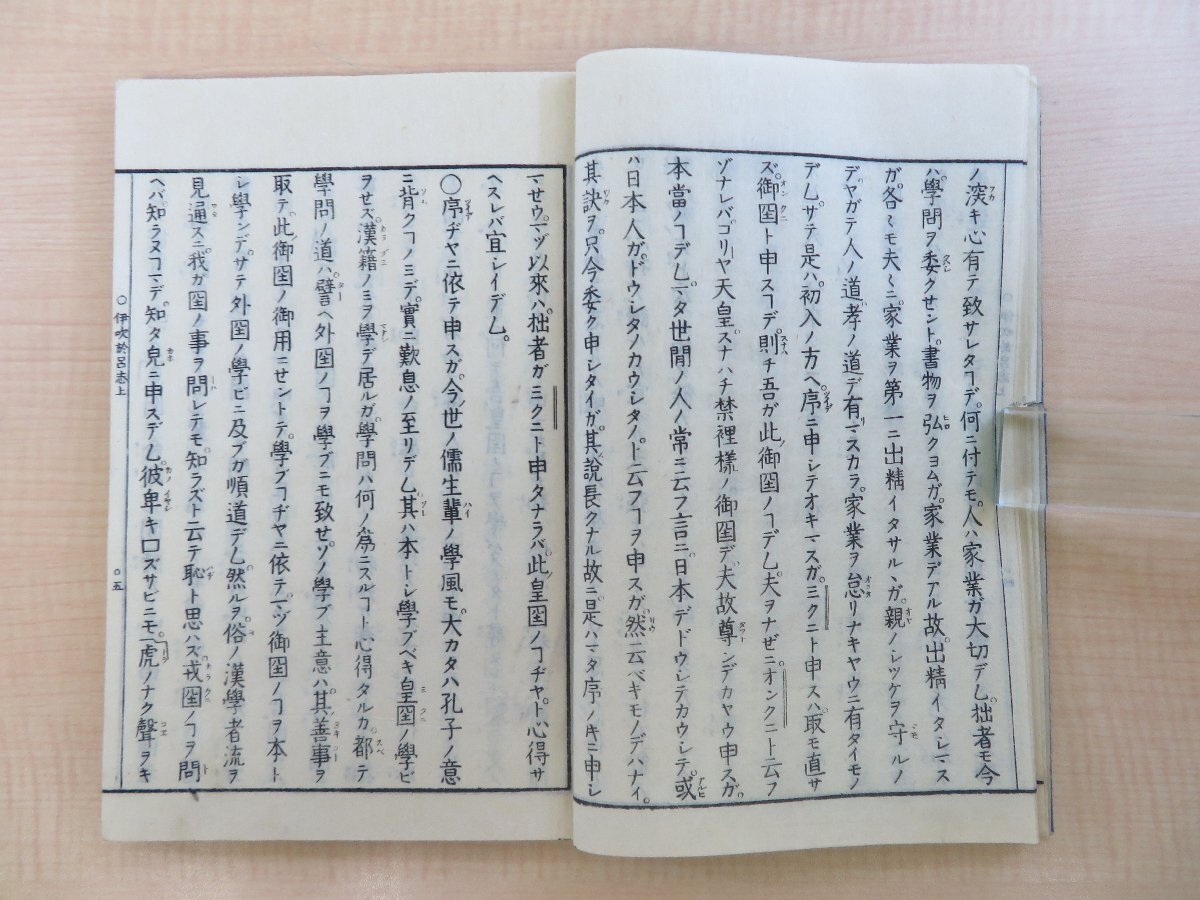 ノ深キ心有テ致サレタヿデ何ニ付テモ人ハ家業ガ大切デム拙者モ今
ハ學問ヲ委クせント書物ヲ弘クヨムガ家業デアル故出精イタシマス
ガ各〻モ夫〻ニ家業ヲ第一ニ出精イタサルヽガ親ノシツケヲ守ルノ
デヤガテ人ノ道孝ノ道デ有マスカラ家業ヲ怠リナキヤウニ有タイモノ
デムサテ是ハ初入ノ方ヘ序ニ申シテオキマスガミクニト申スハ取モ直サ
ズ御国ト申スヿデ則チ吾ガ此御国ノヿデム夫ヲナゼニオンクニト云フ
ゾナレバゴリヤ天皇スナハチ禁裡様ノ御国デ夫故尊ンデカヤウ申スガ
本當ノヿデムマタ世間ノ人ノ常ニ云フ言ニ日本デドウシテカウシテ或
ハ日本人ガドウシタノカウシタノト云フヿヲ申スガ然云ベキモノデハナイ
其訣ヲ只今委ク申シタイガ其説長クナル故ニ是ハマタ序ノキニ申シ
マせウマヅ以來ハ拙者ガミクニト申タナラバ此皇国ノヿヂヤト心得サ
ヘスレバ宜シイデム
〇序ヂヤニ依テ申スガ今世ノ儒生輩ノ學風モ大カタハ孔子ノ意
ニ背クヿノミデ實ニ歎息ノ至リデム其ハ本トシ學ブベキ皇国ノ學ビ
ヲせズ漢籍ノミヲ學デ居ルガ學問ハ何ノ為ニスルヿト心得タルカ都テ
學問ノ道ハ譬ヘ外国ノヿヲ學ブニモ致せソノ學ブ主意ハ其善事ヲ
取テ此御国ノ御用ニせントテ學ブヿヂヤニ依テマヅ御国ノヿヲ本ト
シ學ンデサテ外国ノ學ビニ及ブガ順道デム然ルヲ俗ノ漢學者流ヲ
見通スニ我ガ国ノ事ヲ問レテモ知ラズト云テ恥ト思ハズ戎国ノヿヲ問
ヘバ知ラヌヿマデ知タ皃ニ申スデム彼卑キ口ズサビニモ虎ノナク聲ヲキ
〇伊吹於呂志上
〇五